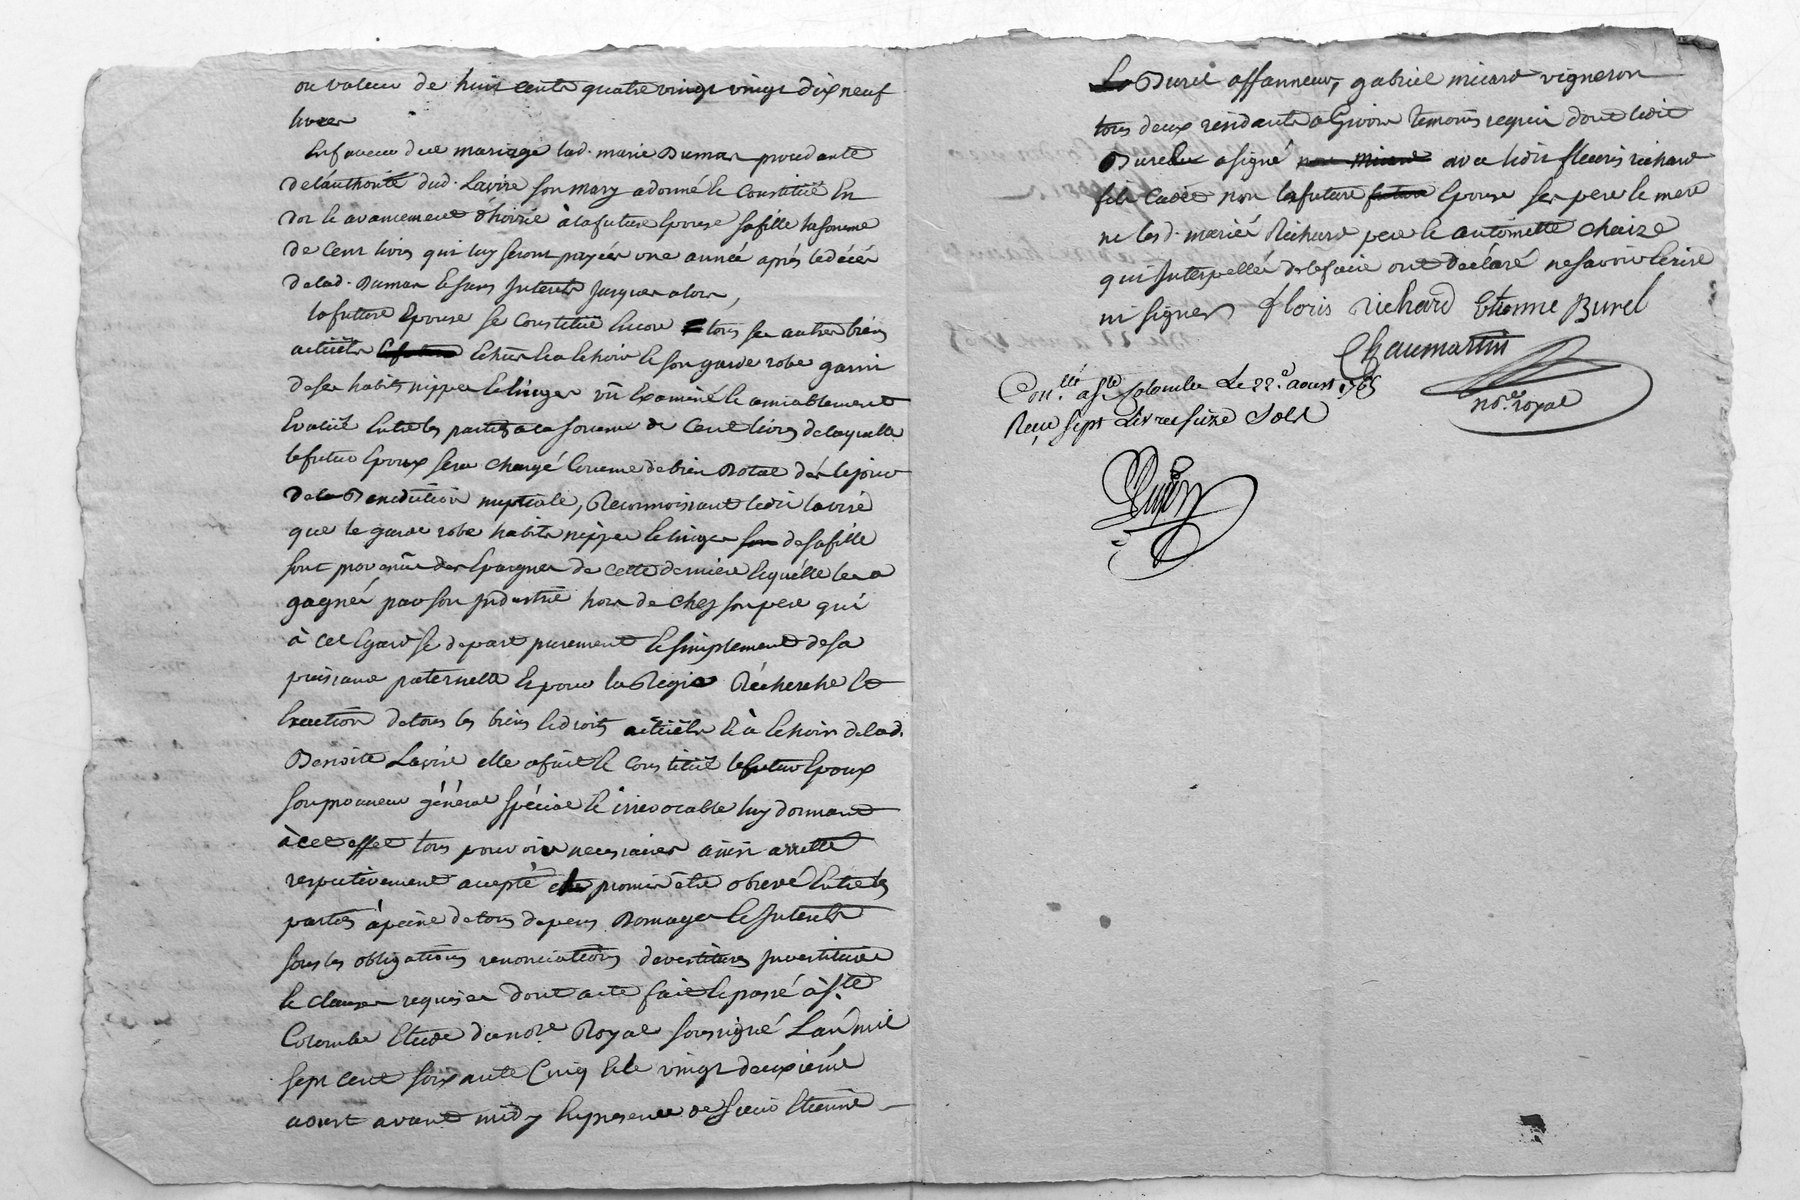 ou valeur de huit cents quatre vingt vingt dix neuf
livres
En faveur du mariage lad. marie Dumas procedante
de l'authorité dud. Lavire son mary a donné et constitué En
dot et avancement d'hoirie à la future Epouse sa fille la somme
de Cent livres qui luy seront payées une année après le décès
de lad. Dumas Et sans Interets jusques alors,
la future Epouse se Constitue Encore tous ses autres biens
actuels Echus et a Echoir et son garde robe garni
de ses habits nippes et linges vû Examiné et amiablement
Evalué Entre les parties a la somme de Cent livres de laquelle
le futur Epoux sera chargé Comme de bien Dotal dès le jour
de la Benediction nuptiale, Reconnoissant ledit lavire
que le garde robe habits nippes et linges de sa fille
sont provenus des Epargnes de cette derniere lesquelles elle a
gagnés par son Industrie hors de chez son pere qui
à cet Egard se depart purement et simplement de sa
puissance paternelle Et pour la Regie Récherche Et
Exaction de tous les biens et droits actuels et à Echoir de lad.
Benoite Lavire elle a fait et Constitué le futur Epoux
son procureur général spécial et irrevocable luy donnant
à cet effet tous pouvoirs necessaires ainsi arretté
respectivement accepté et promis être observé Entre les
parties à peine de tous depens Domages et Interets
sous les obligations renonciations devestitures Investitures
et clauses requises dont acte fait et passé à Ste
Colombe Etude du nore. Royal soussigné L'an mil
sept cent soixante Cinq Et le vingt deuxième
aoust avant midy En presence de Sieur Etienne
Burel affanneur, gabriel micard vigneron
tous deux residants a Givors temoins requis dont ledit
Burel a signé non micard avec ledit fleuris richard
fils Cadet non la future future Epouse ses pere et mere
ni lesd. mariés Richard pere et antoinette chaize
qui Interpellés de le faire ont déclaré ne savoir Ecrire
ni signer floris richard Etienne Burel
Chaumartin
nore. royal
Conllé a Ste Colombe Le 22e. aoust 1765
Reçu sept Livres seize Sols